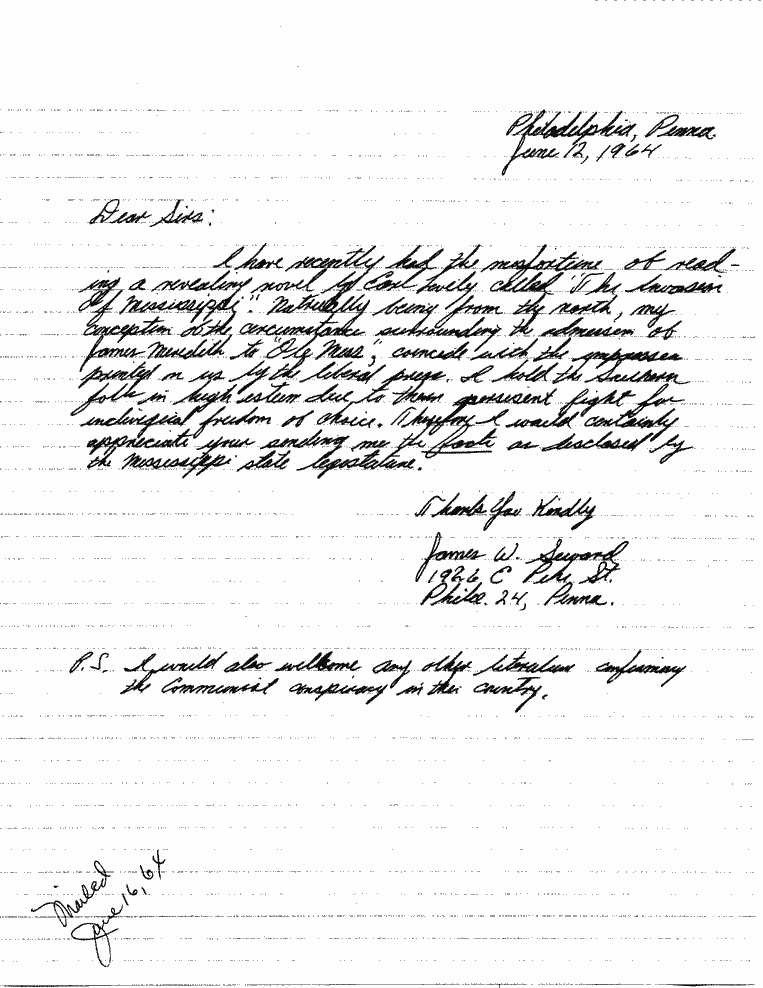 Philadelphia, Penna.
June 12, 1964
Dear Sirs:
I have recently had the misfortune of read-
ing a revealing novel by Earl Lively called "The Invasion
Of Mississippi". Naturally being from the north, my
conception of the circumstance surrounding the admission of
James Meredith to "Ole Miss", coincide with the
printed on us by the liberal press. I hold the Southern
folk in high esteem due to their persisent fight for
individual freedom of choice. Therefore I would certainly
appreciate your sending me the facts as disclosed by
the Mississippi state legislature.
Thank You Kindly
James W. Seward
1926 E Pike St.
Phila. 24, Penna.
P.S. I would also wellcome any other literature confirming
the Communist conspiracy in this country.
Mailed
June 16, 64